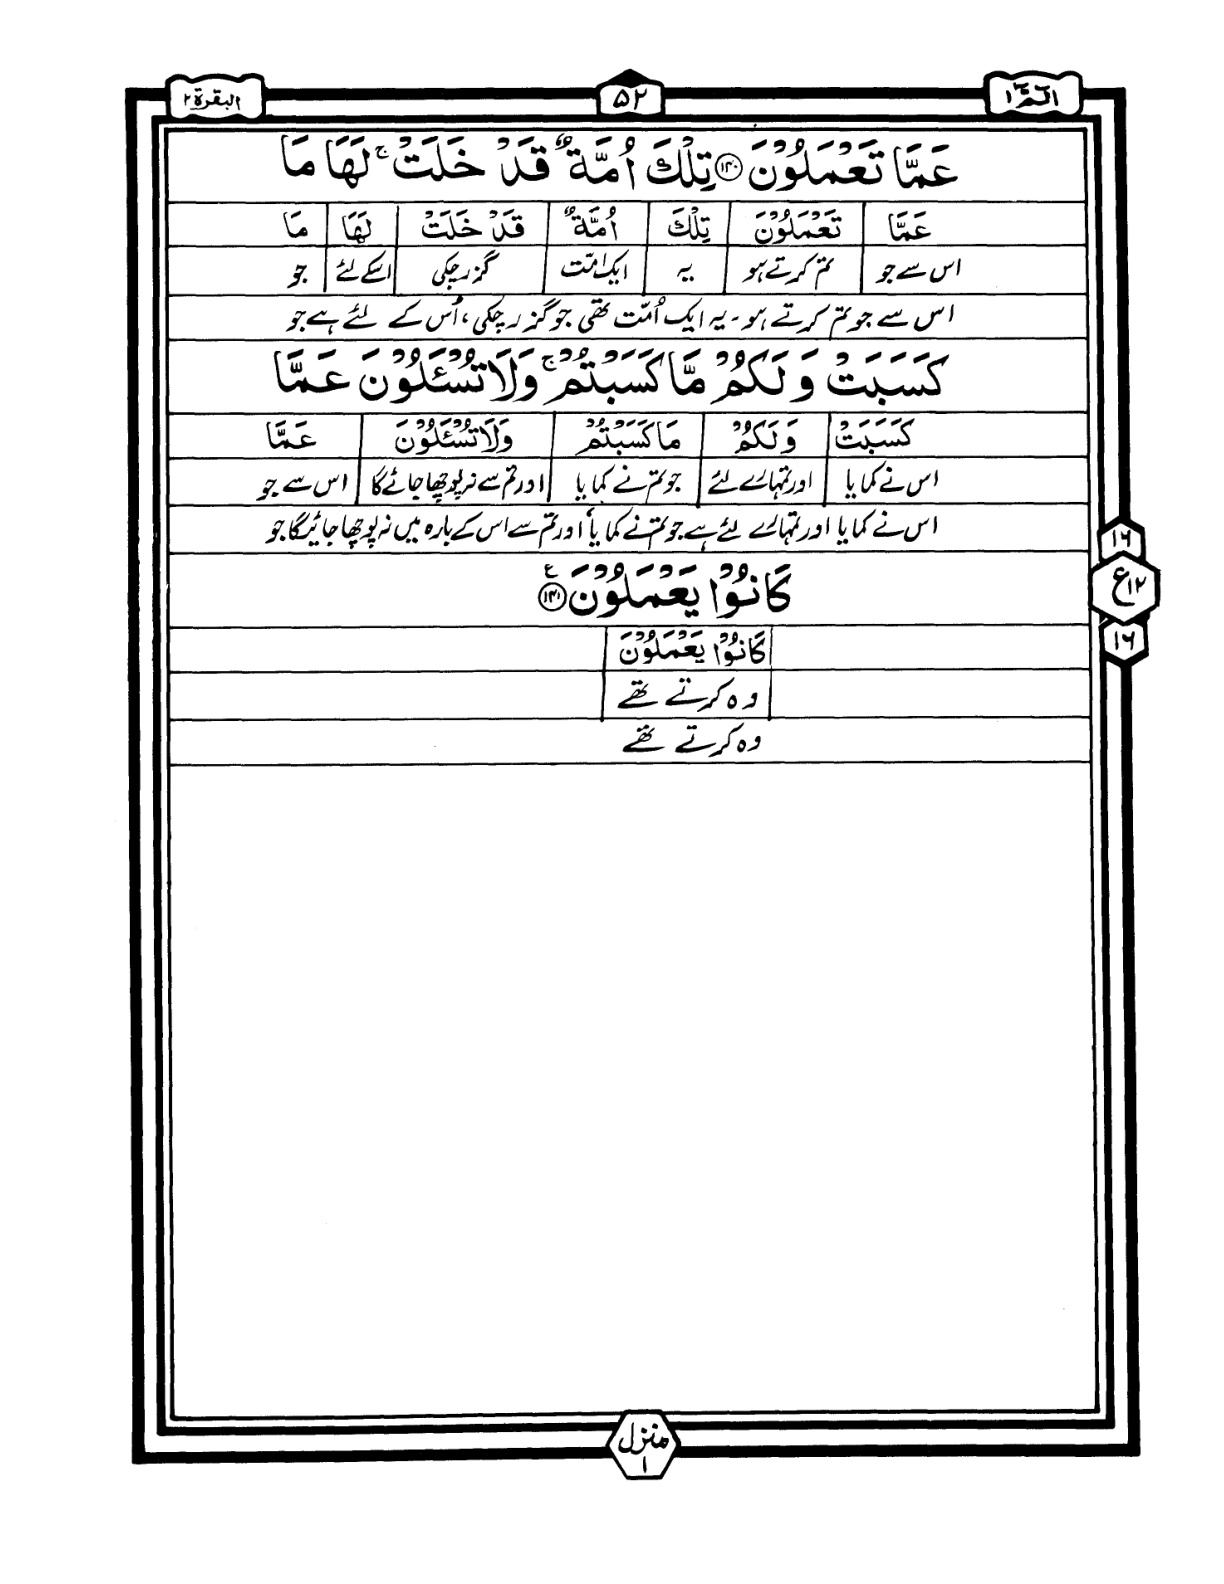 الٓمّٓ ۱ ۵۲ البقرة ۲
عَمَّا تَعْمَلُوْنَ ۝۱۴۰ تِلْكَ اُمَّةٌ قَدْ خَلَتْ ۚ لَهَا مَا
عَمَّا تَعْمَلُوْنَ تِلْكَ اُمَّةٌ قَدْ خَلَتْ لَهَا مَا
اس سے جو تم کرتے ہو یہ ایک امّت گزر چکی اسکے لئے جو
اس سے جو تم کرتے ہو۔ یہ ایک اُمّت تھی جو گزر چکی، اُس کے لئے ہے جو
كَسَبَتْ وَلَكُمْ مَّا كَسَبْتُمْ ۚ وَلَا تُسْئَلُوْنَ عَمَّا
كَسَبَتْ وَلَكُمْ مَا كَسَبْتُمْ وَلَا تُسْئَلُوْنَ عَمَّا
اس نے کمایا اور تمہارے لئے جو تم نے کمایا اور تم سے نہ پوچھا جائے گا اس سے جو
اس نے کمایا اور تمہارے لئے ہے جو تم نے کمایا اور تم سے اس کے بارہ میں نہ پوچھا جائیگا جو
كَانُوْا يَعْمَلُوْنَ ۝۱۴۱ ع
كَانُوْا يَعْمَلُوْنَ
وہ کرتے تھے
وہ کرتے تھے
۱۶
ع ۱۲
۱۶
منزل
۱